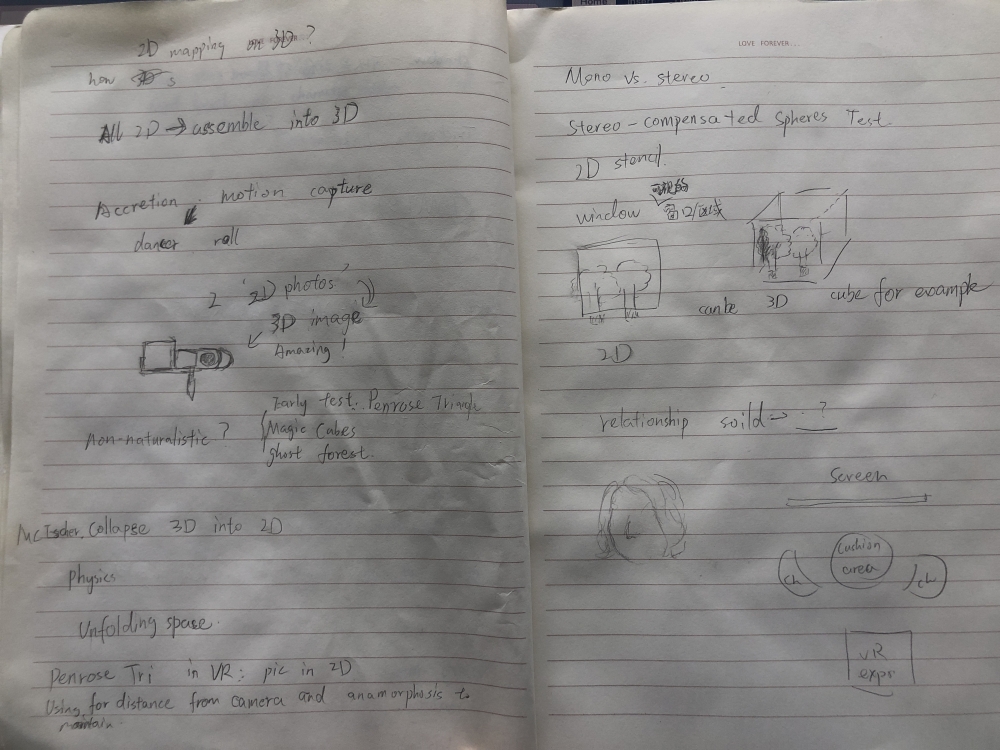 2D mapping on 3D ?
how s
All 2D → assemble into 3D
Accretion : motion capture
dancer roll
2 '2D photos'
3D image
Amazing !
Early test. Penrose Triangle
non-naturalistic ? Magic Cubes
ghost forest.
MC Escher. Collapse 3D into 2D
Physics
Unfolding space.
Penrose Tri in VR : pic in 2D
Using for distance from camera and anamorphosis to
maintain.
LOVE FOREVER...
Mono vs. stereo
Stereo-compensated Spheres Test.
2D stencil.
可视的
window 窗口/区域
can be 3D cube for example
2D
relationship soild → ?
Screen
Cushion
area
ch
ch
VR
expr